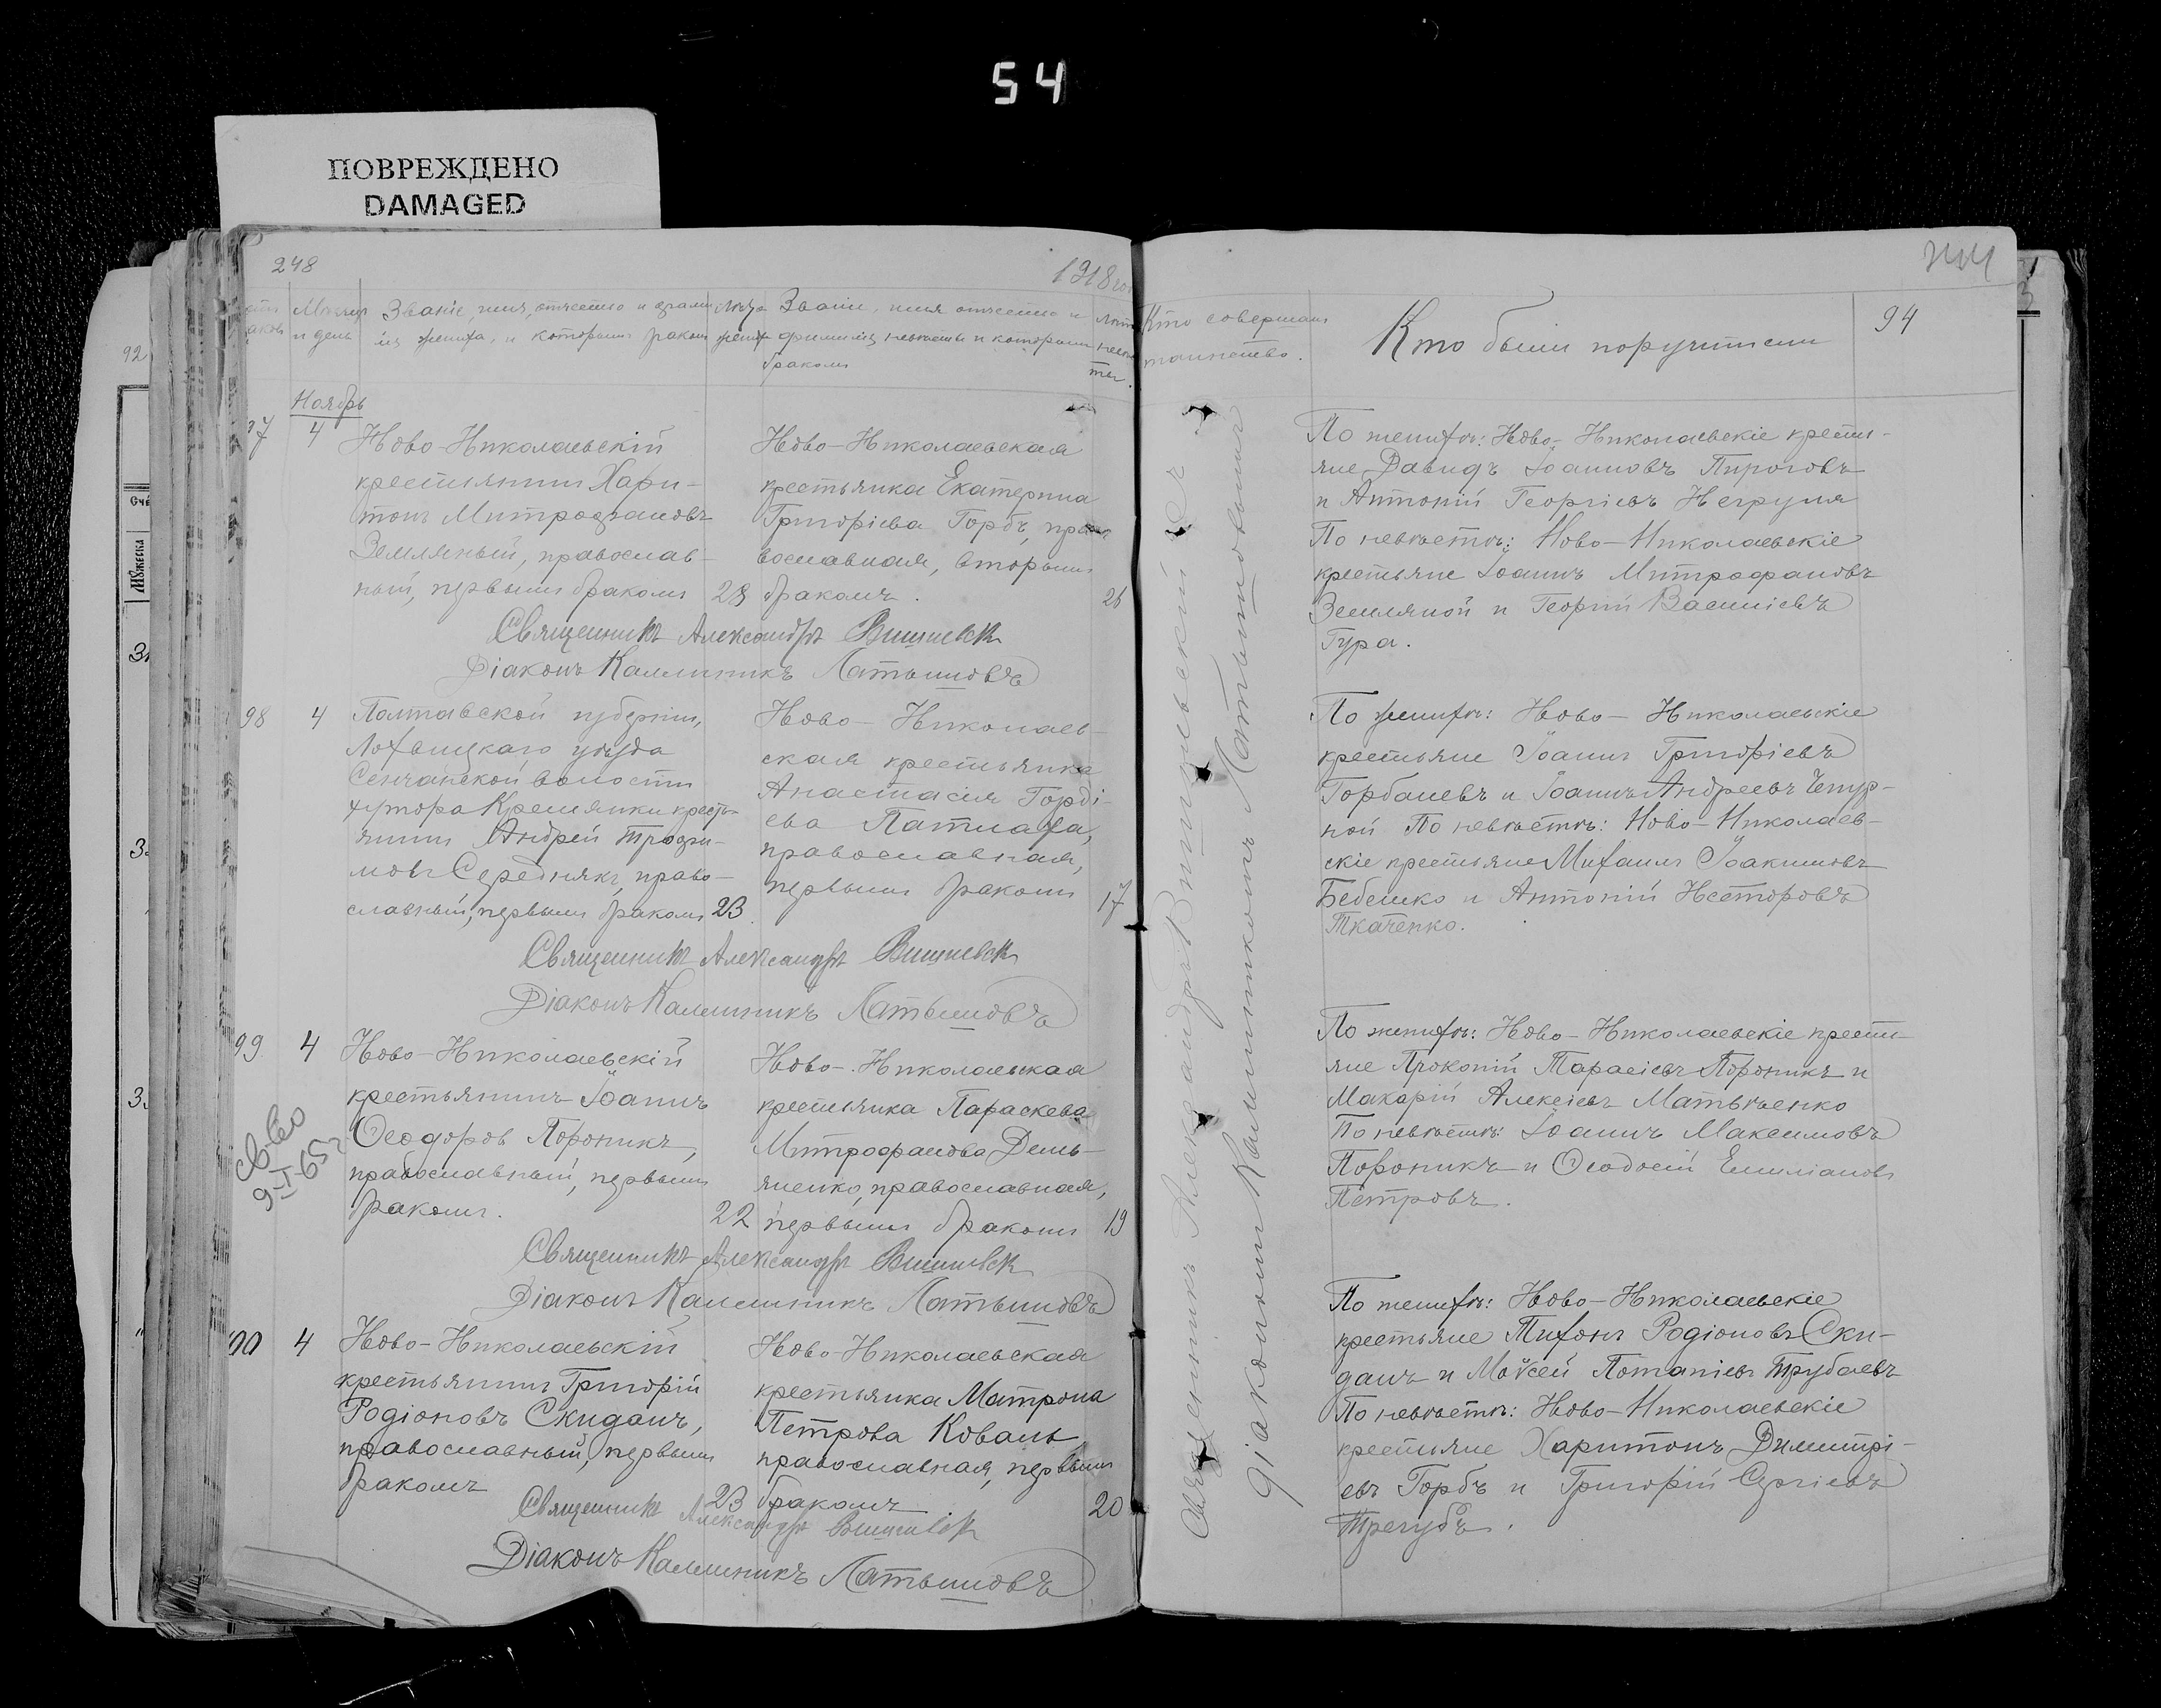 54
ПОВРЕЖДЕНО
DAMAGED
248
1918
Месяц и день
Званіе, имя, отчество и фамилія жениха, и которымъ бракомъ
Лѣта жениха
Званіе, имя отчество и фамилія невѣсты и которымъ бракомъ
Ноябрь
97
4
Ново-Николаевскій
крестьянинъ Хари-
тонъ Митрофановъ
Земляный, православ-
ный, первымъ бракомъ
23
Ново-Николаевская
крестьянка Екатерина
Григоріева Горбъ, пра-
вославная, вторымъ
бракомъ.
26
Священникъ Александръ
Діаконъ Каллиникъ Латышовъ
98
4
Полтавской губерніи,
Лохвицкаго уѣзда
Сенчанской волости
хутора Кремянки кресть-
янинъ Андрей Трофи-
мовъ Середнякъ, право-
славный, первымъ бракомъ
23.
Ново-Николаев-
ская крестьянка
Анастасія Горді-
ева Патлаха,
православная,
первымъ бракомъ
17
Священникъ Александръ
Діаконъ Каллиникъ Латышовъ
99
4
Ново-Николаевскій
крестьянинъ Іоаннъ
Ѳеодоровъ Пороникъ,
православный, первымъ
бракомъ.
22
Ново-Николаевская
крестьянка Параскева
Митрофанова Демь-
яненко, православная,
первымъ бракомъ
19
св-во
9-I-65 г
Священникъ Александръ
Діаконъ Каллиникъ Латышовъ
100
4
Ново-Николаевскій
крестьянинъ Григорій
Родіоновъ Скиданъ,
православный, первымъ
бракомъ
23
Ново-Николаевская
крестьянка Матрона
Петрова Коваль,
православная, первымъ
бракомъ
20
Священникъ Александръ
Діаконъ Каллиникъ Латышовъ
Кто совершалъ
таинство.
Кто были поручители
94
Діакономъ Каллиникомъ Латышовымъ
По женихѣ: Ново-Николаевскіе кресть-
яне Давидъ Іоанновъ Пироговъ
и Антоній Георгіевъ Негруля
По невѣстѣ: Ново-Николаевскіе
крестьяне Іоаннъ Митрофановъ
Земляной и Георгій Василіевъ
Гура.
По женихѣ: Ново-Николаевскіе
крестьяне Іоаннъ Григоріевъ
Горбаневъ и Іоаннъ Андреевъ Чепур-
ной По невѣстѣ: Ново-Николаев-
скіе крестьяне Михаилъ Іоакимовъ
Бебешко и Антоній Несторовъ
Ткаченко.
По женихѣ: Ново-Николаевскіе кресть-
яне Прокопій Тарасіевъ Пороникъ и
Макарій Алексіевъ Матвѣенко
По невѣстѣ: Іоаннъ Максимовъ
Пороникъ и Ѳеодосій Емиліановъ
Петровъ.
По женихѣ: Ново-Николаевскіе
крестьяне Тихонъ Родіоновъ Ски-
данъ и Моѵсей Потапіевъ Трубаевъ
По невѣстѣ: Ново-Николаевскіе
крестьяне Харитонъ Димитрі-
евъ Горбъ и Григорій Сергіевъ
Трегубъ.